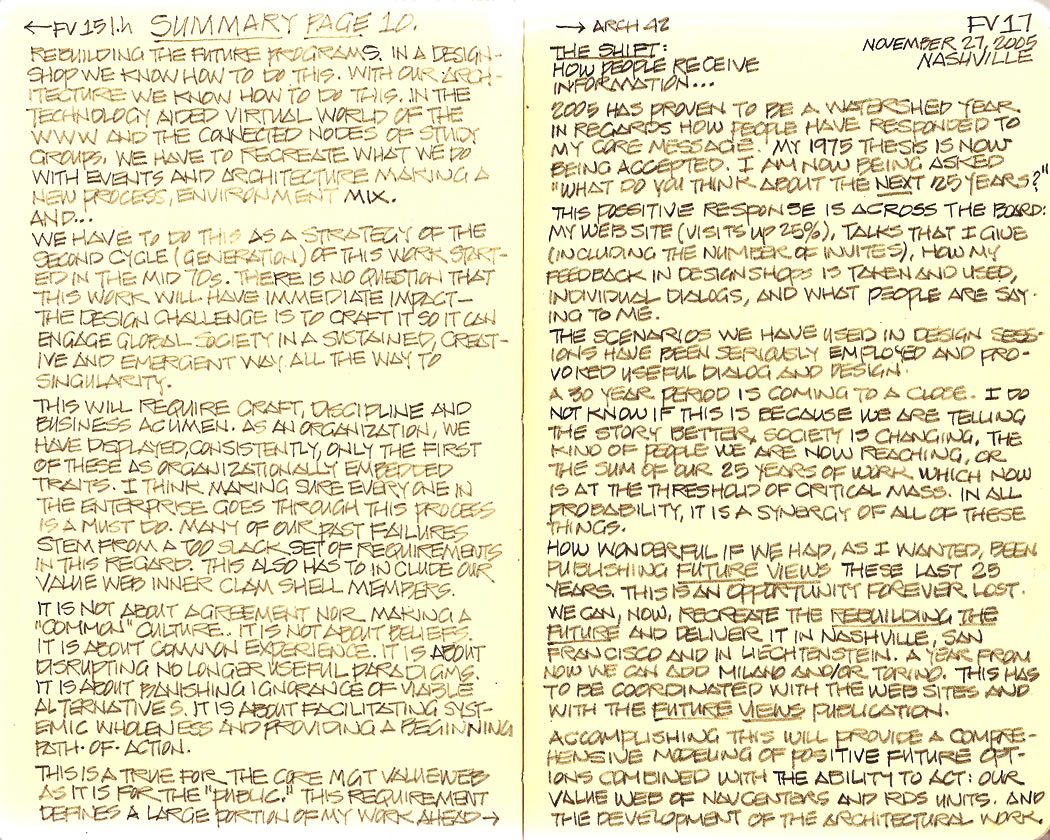 ←FV 151.h SUMMARY PAGE 10.
REBUILDING THE FUTURE PROGRAMS. IN A DESIGN-
SHOP WE KNOW HOW TO DO THIS. WITH OUR ARCH-
ITECTURE WE KNOW HOW TO DO THIS. IN THE
TECHNOLOGY AIDED VIRTUAL WORLD OF THE
WWW AND THE CONNECTED NODES OF STUDY
GROUPS, WE HAVE TO RECREATE WHAT WE DO
WITH EVENTS AND ARCHITECTURE MAKING A
NEW PROCESS, ENVIRONMENT MIX.
AND...
WE HAVE TO DO THIS AS A STRATEGY OF THE
SECOND CYCLE (GENERATION) OF THIS WORK START-
ED IN THE MID 70s. THERE IS NO QUESTION THAT
THIS WORK WILL HAVE IMMEDIATE IMPACT—
THE DESIGN CHALLENGE IS TO CRAFT IT SO IT CAN
ENGAGE GLOBAL SOCIETY IN A SUSTAINED, CREAT-
IVE AND EMERGENT WAY ALL THE WAY TO
SINGULARITY.
THIS WILL REQUIRE CRAFT, DISCIPLINE AND
BUSINESS ACUMEN. AS AN ORGANIZATION, WE
HAVE DISPLAYED, CONSISTENTLY, ONLY THE FIRST
OF THESE AS ORGANIZATIONALLY EMBEDDED
TRAITS. I THINK MAKING SURE EVERY ONE IN
THE ENTERPRISE GOES THROUGH THIS PROCESS
IS A MUST DO. MANY OF OUR PAST FAILURES
STEM FROM A TOO SLACK SET OF REQUIREMENTS
IN THIS REGARD. THIS ALSO HAS TO INCLUDE OUR
VALUE WEB INNER CLAM SHELL MEMBERS.
IT IS NOT ABOUT AGREEMENT NOR MAKING A
"COMMON" CULTURE. IT IS NOT ABOUT BELIEFS.
IT IS ABOUT COMMON EXPERIENCE. IT IS ABOUT
DISRUPTING NO LONGER USEFUL PARADIGMS.
IT IS ABOUT BANISHING IGNORANCE OF VIABLE
ALTERNATIVES. IT IS ABOUT FACILITATING SYST-
EMIC WHOLENESS AND PROVIDING A BEGINNING
PATH-OF-ACTION.
THIS IS A TRUE FOR THE CORE MGT VALUEWEB
AS IT IS FOR THE "PUBLIC." THIS REQUIREMENT
DEFINES A LARGE PORTION OF MY WORK AHEAD→
→ ARCH 42 FV 17
NOVEMBER 27, 2005
NASHVILLE
THE SHIFT:
HOW PEOPLE RECEIVE
INFORMATION...
2005 HAS PROVEN TO BE A WATERSHED YEAR
IN REGARDS HOW PEOPLE HAVE RESPONDED TO
MY CORE MESSAGE. MY 1975 THESIS IS NOW
BEING ACCEPTED. I AM NOW BEING ASKED
"WHAT DO YOU THINK ABOUT THE NEXT 25 YEARS?"
THIS POSSITIVE RESPONSE IS ACROSS THE BOARD:
MY WEB SITE (VISITS UP 25%), TALKS THAT I GIVE
(INCLUDING THE NUMBER OF INVITES), HOW MY
FEEDBACK IN DESIGNSHOPS IS TAKEN AND USED,
INDIVIDUAL DIALOGS, AND WHAT PEOPLE ARE SAY-
ING TO ME.
THE SCENARIOS WE HAVE USED IN DESIGN SESS-
IONS HAVE BEEN SERIOUSLY EMPLOYED AND PRO-
VOKED USEFUL DIALOG AND DESIGN.
A 30 YEAR PERIOD IS COMING TO A CLOSE. I DO
NOT KNOW IF THIS IS BECAUSE WE ARE TELLING
THE STORY BETTER, SOCIETY IS CHANGING, THE
KIND OF PEOPLE WE ARE NOW REACHING, OR
THE SUM OF OUR 25 YEARS OF WORK WHICH NOW
IS AT THE THRESHOLD OF CRITICAL MASS. IN ALL
PROBABILITY, IT IS A SYNERGY OF ALL OF THESE
THINGS.
HOW WONDERFUL IF WE HAD, AS I WANTED, BEEN
PUBLISHING FUTURE VIEWS THESE LAST 25
YEARS. THIS IS AN OPPORTUNITY FOREVER LOST.
WE CAN, NOW, RECREATE THE REBUILDING THE
FUTURE AND DELIVER IT IN NASHVILLE, SAN
FRANCISCO AND IN LIECHTENSTEIN. A YEAR FROM
NOW WE CAN ADD MILANO AND/OR TORINO. THIS HAS
TO BE COORDINATED WITH THE WEB SITES AND
WITH THE FUTURE VIEWS PUBLICATION.
ACCOMPLISHING THIS WILL PROVIDE A COMPRE-
HENSIVE MODELING OF POSITIVE FUTURE OPT-
IONS COMBINED WITH THE ABILITY TO ACT: OUR
VALUE WEB OF NAVCENTERS AND RDS UNITS. AND
THE DEVELOPMENT OF THE ARCHITECTURAL WORK.